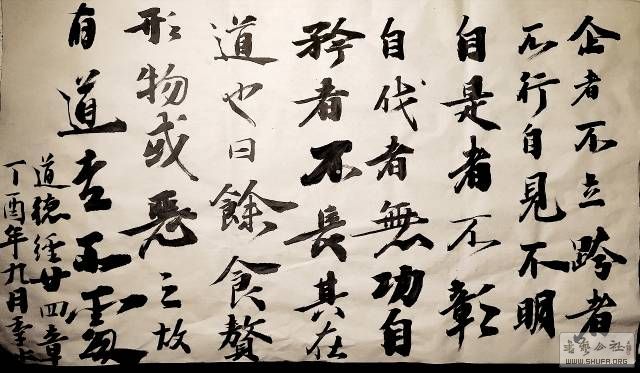 企者不立跨者
不行自見不明
自是者不彰
自伐者無功自
矜者不長其在
道也曰餘食贅
形物或惡之故
有道者不處
道德經廿四章
丁酉年九月
書藝公社
WWW.SHUFA.ORG